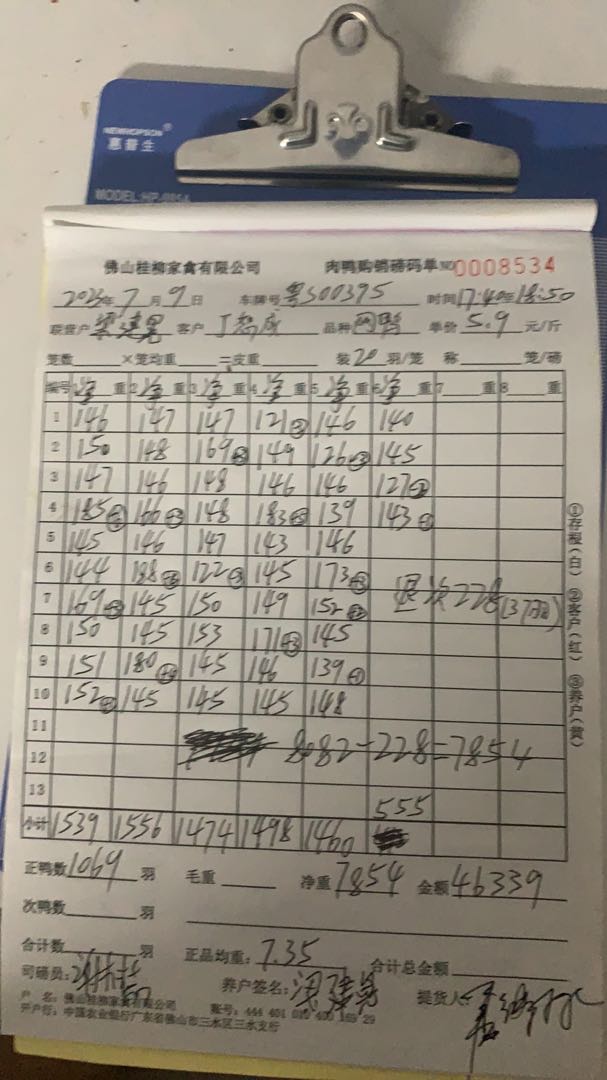 NEWHOPSON®
惠普生
佛山桂柳家禽有限公司 肉鸭购销磅码单 NO 0008534
2023年7月9日 车牌号 粤S00395 时间 17:40 18:50
联营户 客户 品种 单价 5.9 元/斤
笼数 ×笼均重 =皮重 装 20 羽/笼 称 笼/磅
编号 1净重 2净重 3净重 4净重 5净重 6净重 7 重 8 重
1 146 147 147 121 146 140
2 150 148 169 149 126 145
3 147 146 148 146 146 127
4 185 166 148 183 139 143
5 145 146 147 143 146
6 144 188 122 145 173
7 169 145 150 149 152 退次228(37羽)
8 150 145 153 171 145
9 151 180 145 146 139
10 152 145 145 145 148
11
12 8082-228=7854
13 555
小计 1539 1556 1474 1498 1460
正鸭数 1069 羽 毛重 净重 7854 金额 46339
次鸭数 羽
合计数 羽 正品均重: 7.35 合计总金额
司磅员: 养户签名: 提货人:
户 名: 佛山桂柳家禽有限公司 账号:
开户行: 中国农业银行广东省佛山市三水区三水支行
①存根(白) ②客户(红) ③养户(黄)